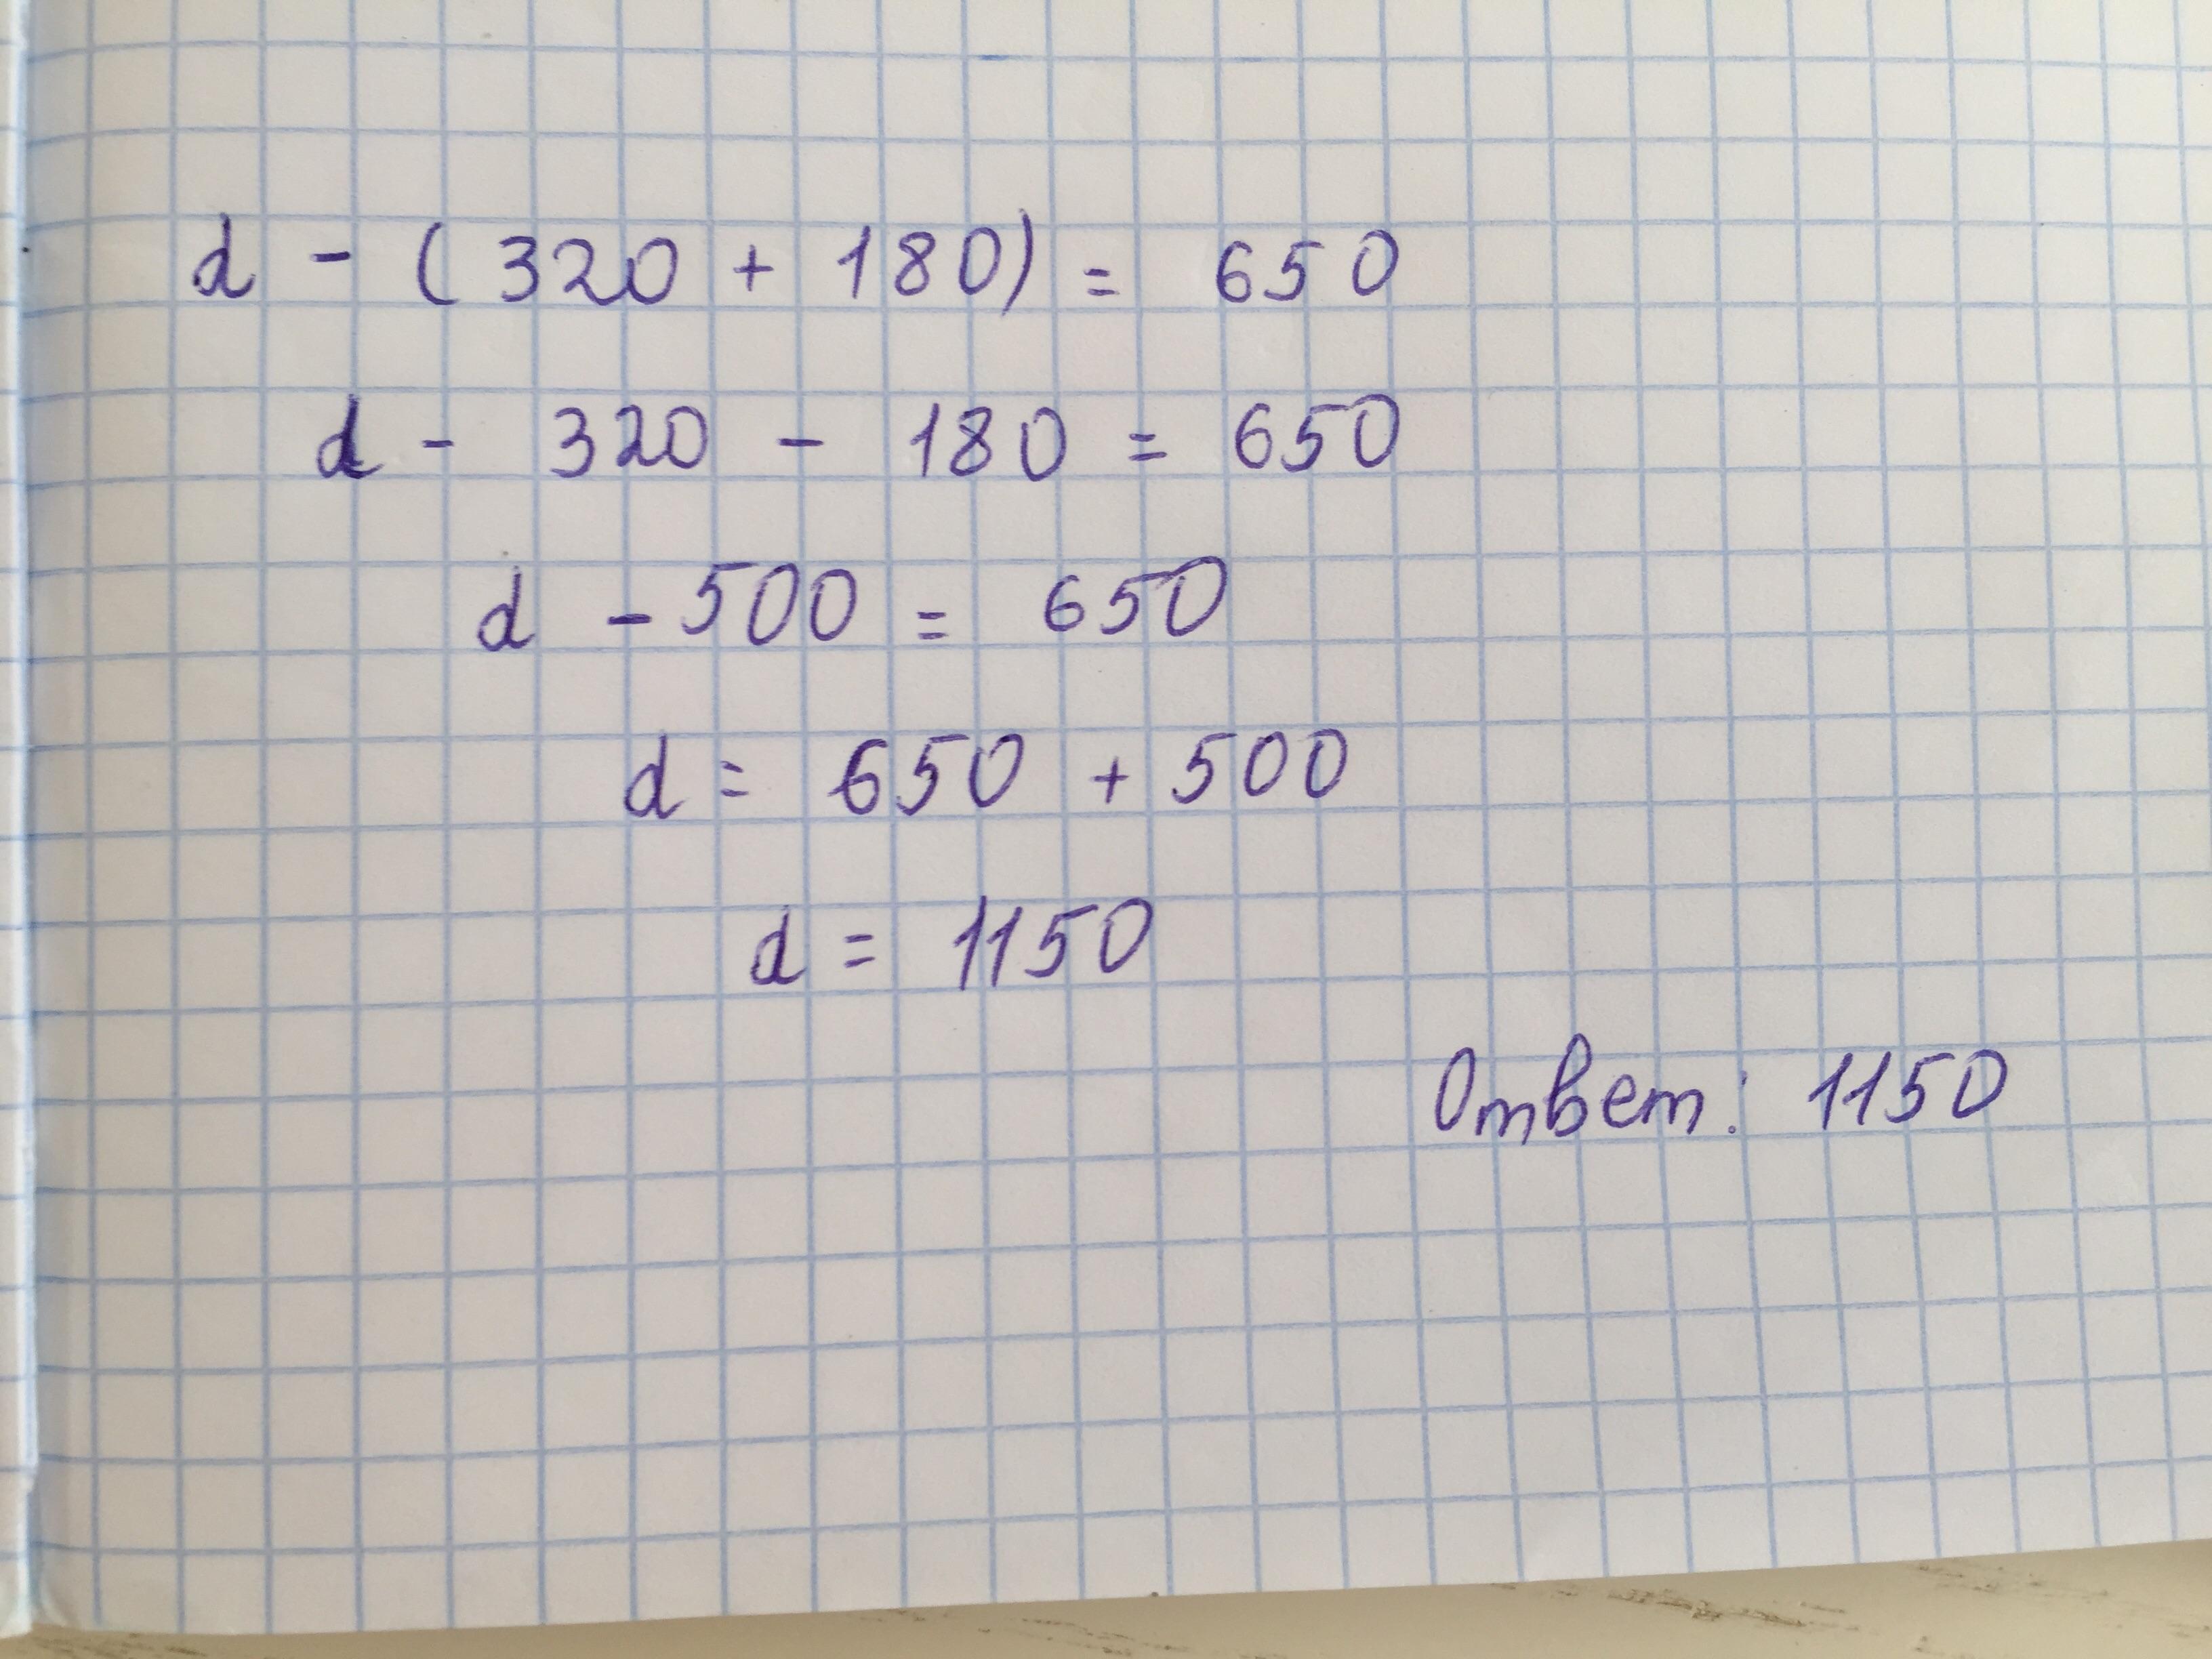 d - (320 + 180) = 650
d - 320 - 180 = 650
d - 500 = 650
d = 650 + 500
d = 1150
Ответ: 1150